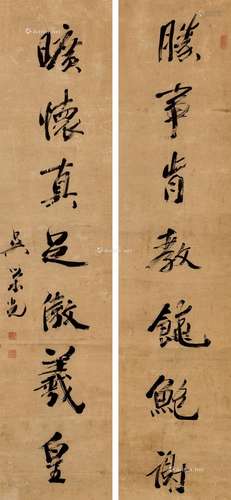 勝事肯教饒鮑謝
曠懷真足傲羲皇
吳榮光